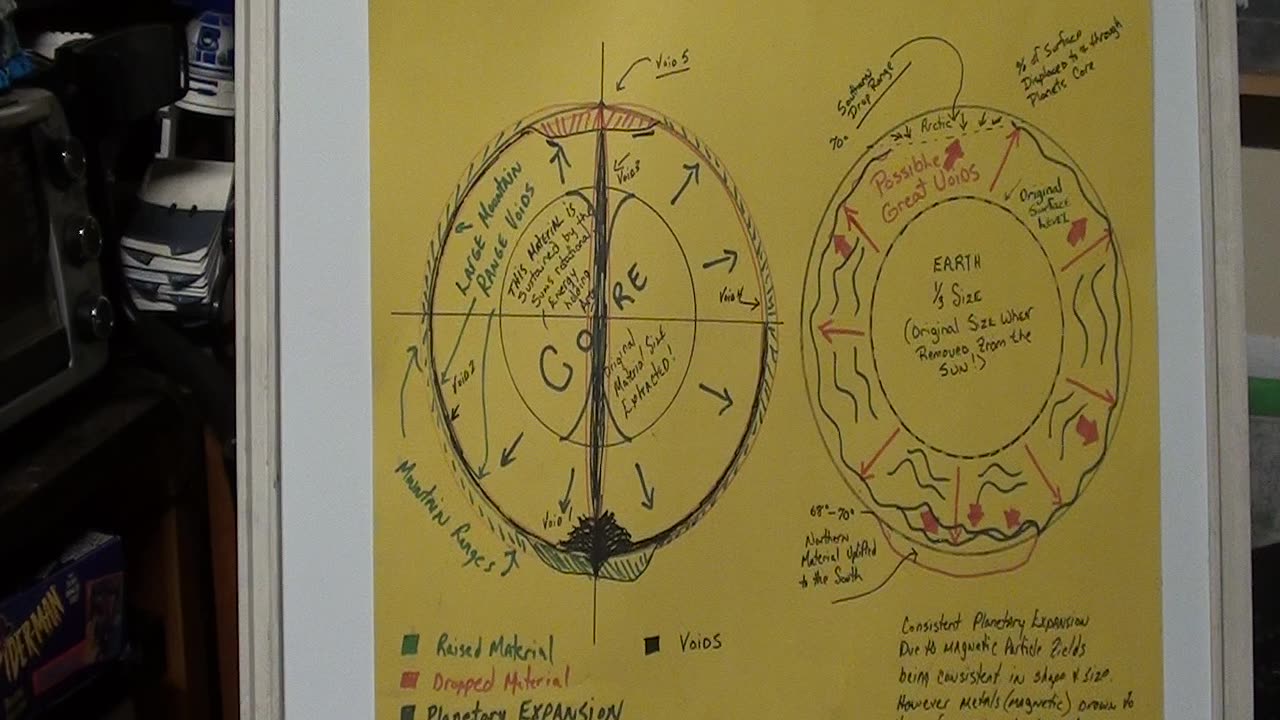 Void 5
Void 3
LARGE Mountain
RANGE VOIDS
THIS MATERIAL IS
Sustained by the
Suns rotational
Energy
holding
CORE
Original
Material Size
EXTRACTED!
Void 4
Void 2
Void 1
Mountain Ranges
Raised Material
Dropped Material
Planetary EXPANSION
VOIDS
Southern
Drop Range
70°
Arctic
% of Surface
Displaced to & through
Planets Core
Possible
Great Voids
Original
Surface
LEVEL
EARTH
1/3 SIZE
(Original Size When
Removed From the
SUN!)
68°-70°
Northern
Material Uplifted
to the South
Consistent Planetary EXPANSION
Due to MAgnatic Particle Fields
being consistent in shape & size.
However Metals (magnetic) drawn to
DERMAN